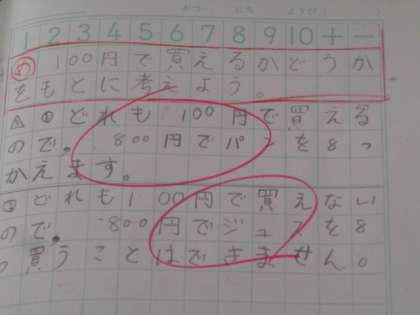 1 2 3 4 5 6 7 8 9 10 + −
め 100円で買えるかどうか
をもとに考えよう。
A ①どれも100円で買える
ので。800円でパンを8つ
かえます。
②どれも100円で買えない
ので。800円でジュースを8
つ買うことはできません。